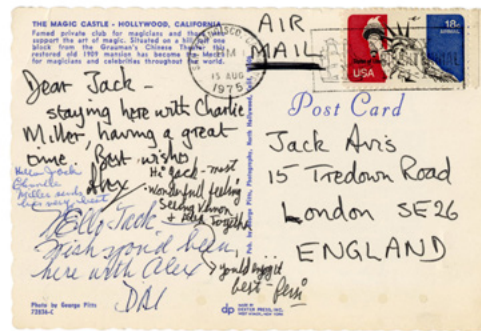 THE MAGIC CASTLE - HOLLYWOOD, CALIFORNIA
Famed private club for magicians and those who
support the art of magic. Situated on a hill just one
block from the Grauman's Chinese Theater this
restored old 1909 mansion has become the Mecca
for magicians and celebrities throughout the world.
AIR
MAIL
PM
15 AUG
1975
USA
18c
USA
AIRMAIL
Dear Jack -
staying here with Charlie
Miller, having a great
time. Best wishes
Alex
Hello Jack
Charlie
Miller sends
his very best
Hi Jack - most
wonderful feeling
Seeing Vernon
+ Alex Together
you'd enjoy it
best -
Hello Jack
Wish you'd been
here with Alex
DAI
Post Card
Jack Avis
15 Tredown Road
London SE26
ENGLAND
Pub. by George Pitts, Photographs, North Hollywood,
Photo by George Pitts
72836-C
dp
MADE BY
DEXTER PRESS, INC.
WEST NYACK, NEW YORK